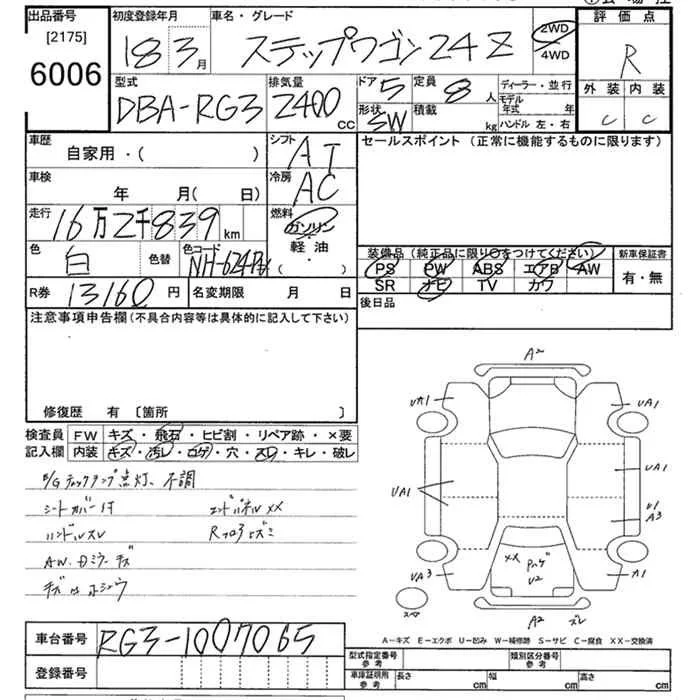 出品番号
[2175]
6006
初度登録年月
18 3月
車名・グレード
ステップワゴン24Z
2WD
4WD
評価点
R
外装 内装
C C
型式
DBA-RG3
排気量
2400 CC
ドア 5
形状 SW
定員 8人
積載 kg
ディーラー・並行
モデル年式 年
ハンドル 左・右
車歴
自家用・( )
シフト AT
車検 年 月( 日)
冷房 AC
走行 16万2千839 km
燃料 ガソリン
軽油
( ・ )
色 白
色替
色コード NH-624P
セールスポイント (正常に機能するものに限ります)
装備品(純正品に限り○をつけてください)
PS PW ABS エアB AW
SR ナビ TV カワ
新車保証書
有・無
R券 13160円
名変期限 月 日
後日品
注意事項申告欄(不具合内容等は具体的に記入して下さい)
修復歴 有 [箇所 ]
検査員記入欄
FW キズ・飛石・ヒビ割・リペア跡・×要
内装 キズ・汚レ・コゲ・穴・スレ・キレ・破レ
E/Gチェックランプ点灯、不調
シートカバー付 エンドパネルXX
ハンドルスレ Rフロアヒズミ
AW、Dミラーキズ
A2
UA1 UA1
UA1 UA1
U1
A3
XX
U2
UA3 A1
スペア
A2 ズレ
A-キズ E-エクボ U-凹み W-補修跡 S-サビ C-腐食 XX-交換済
車台番号 RG3-1007065
登録番号
型式指定番号 参考
類別区分番号 参考
車庫証明用 参考
長さ cm 幅 cm 高さ cm